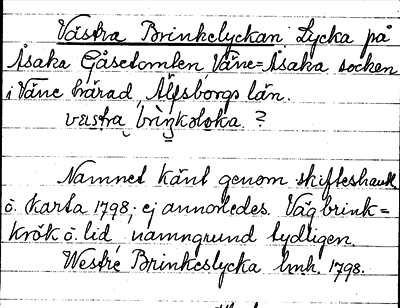 Västra Brinkelyckan Lycka på
Åsaka Gåsetomten Väne=Åsaka socken
i Väne härad, Älfsborgs län.
västra, brinkoloka. ?
Namnet känt genom skifteshandl
o. karta 1798; ej annorledes. Väg brink=
krök o. lid namngrund tydligen.
Westre Brinkeslycka lmh. 1798.